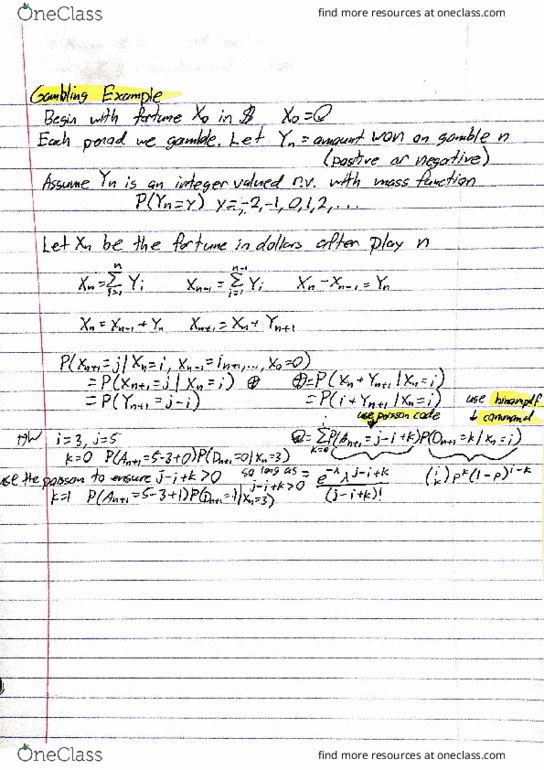 OneClass
find more resources at oneclass.com
Gambling Example
Begin with fortune X₀ in $ X₀=0
Each period we gamble. Let Yₙ = amount won on gamble n
(positive or negative)
Assume Yₙ is an integer valued r.v. with mass function
P(Yₙ=y) y=-2,-1,0,1,2,...
Let Xₙ be the fortune in dollars after play n
Xₙ=∑ⁿᵢ₌₁ Yᵢ Xₙ₋₁=∑ⁿ⁻¹ᵢ₌₁ Yᵢ Xₙ-Xₙ₋₁=Yₙ
Xₙ=Xₙ₋₁+Yₙ Xₙ₊₁=Xₙ+Yₙ₊₁
P(Xₙ₊₁=j|Xₙ=i, Xₙ₋₁=iₙ₊₁,..., X₀=0)
=P(Xₙ₊₁=j|Xₙ=i) ⊕ ⊕=P(Xₙ+Yₙ₊₁|Xₙ=i)
=P(Yₙ₊₁=j-i) =P(i+Yₙ₊₁|Xₙ=i) use binompdf
use poisson code ↓ command
i=3, j=5 =∑ⁱₖ₌₀ P(Aₙ₊₁=j-i+k)P(Dₙ₊₁=k|Xₙ=i)
k=0 P(Aₙ₊₁=5-3+0)P(Dₙ₊₁=0|Xₙ=3)
use the poisson to ensure j-i+k>0 so long as j-i+k>0 = e^-λ λ^(j-i+k) / (j-i+k)! (i k) pᵏ(1-p)ⁱ⁻ᵏ
k=1 P(Aₙ₊₁=5-3+1)P(Dₙ₊₁=1|Xₙ=3)
OneClass
find more resources at oneclass.com